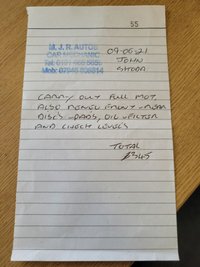 55
M.J.R. AUTOS
CAR MECHANIC
Tel:
Mob:
09-06-21
JOHN
SKODA
CARRY OUT FULL MOT
ALSO RENEW FRONT - REAR
DISCS - PADS, OIL - FILTER
AND CHECK LEVELS
TOTAL
£345